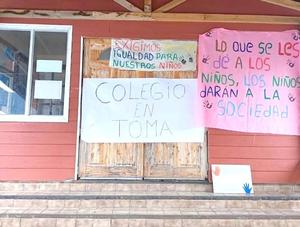 EXIGIMOS
IGUALDAD PARA
NUESTROS NIÑOS
COLEGIO
EN
TOMA
LO QUE SE LES
DE A LOS
NIÑOS, LOS NIÑOS
DARAN A LA
SOCIEDAD